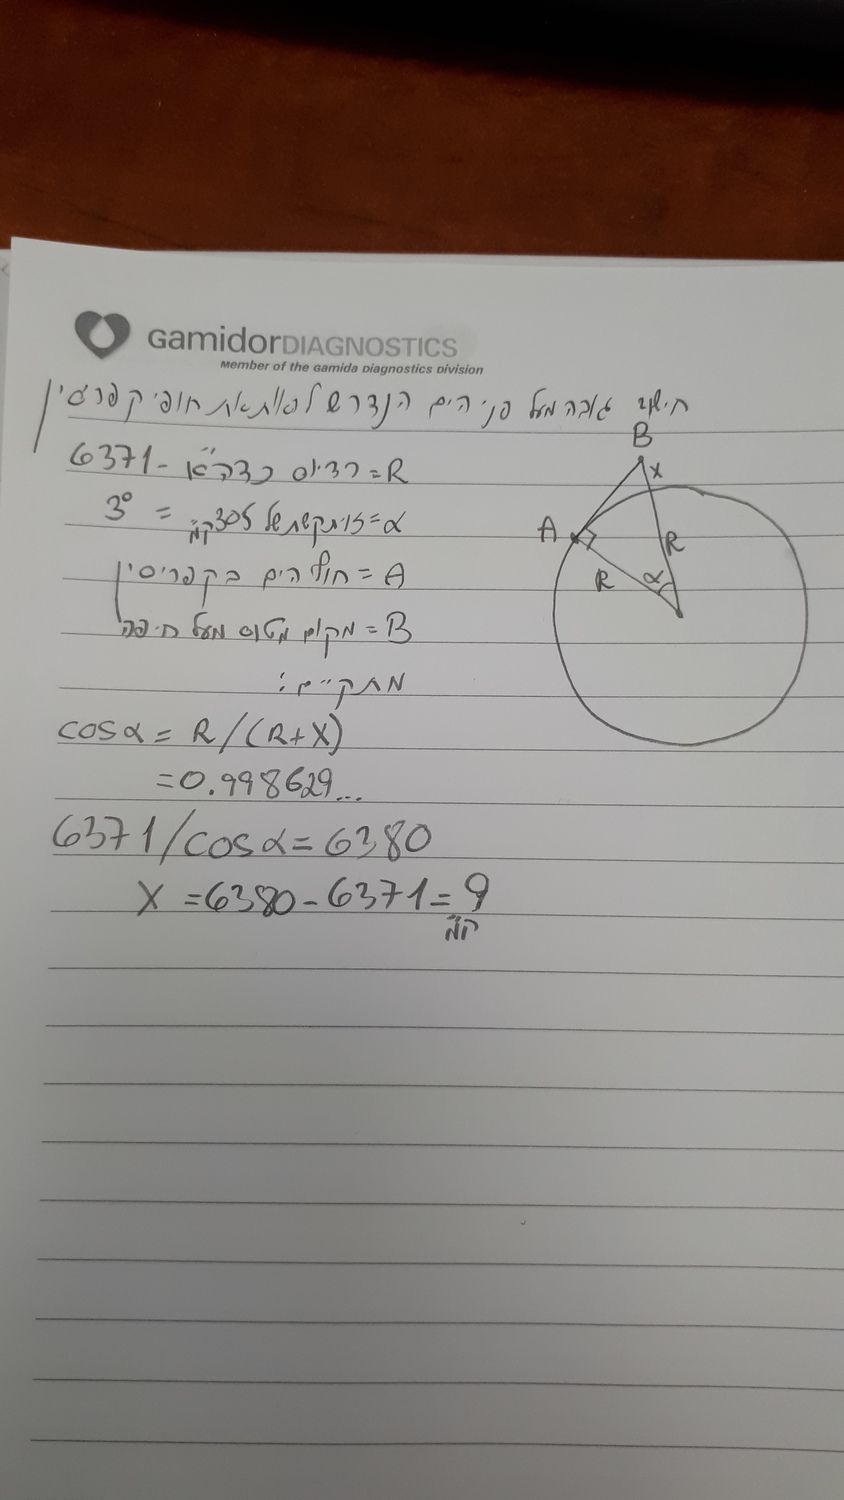 GamidorDIAGNOSTICS
Member of the Gamida Diagnostics Division
חישוב גובה מעל פני הים הנדרש לראות את חופי קפריסין
R = רדיוס כדה"א - 6371
α = זוית קשת של 305 ק"מ = 3°
A = חוף הים בקפריסין
B = מקום מטוס מעל חיפה
מתקיים:
cosα = R/(R+X)
=0.998629...
6371/cosα = 6380
X = 6380 - 6371 = 9
ק"מ
B
X
A
R
R
α